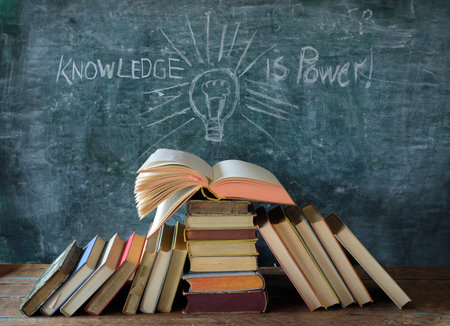 KNOWLEDGE IS POWER!